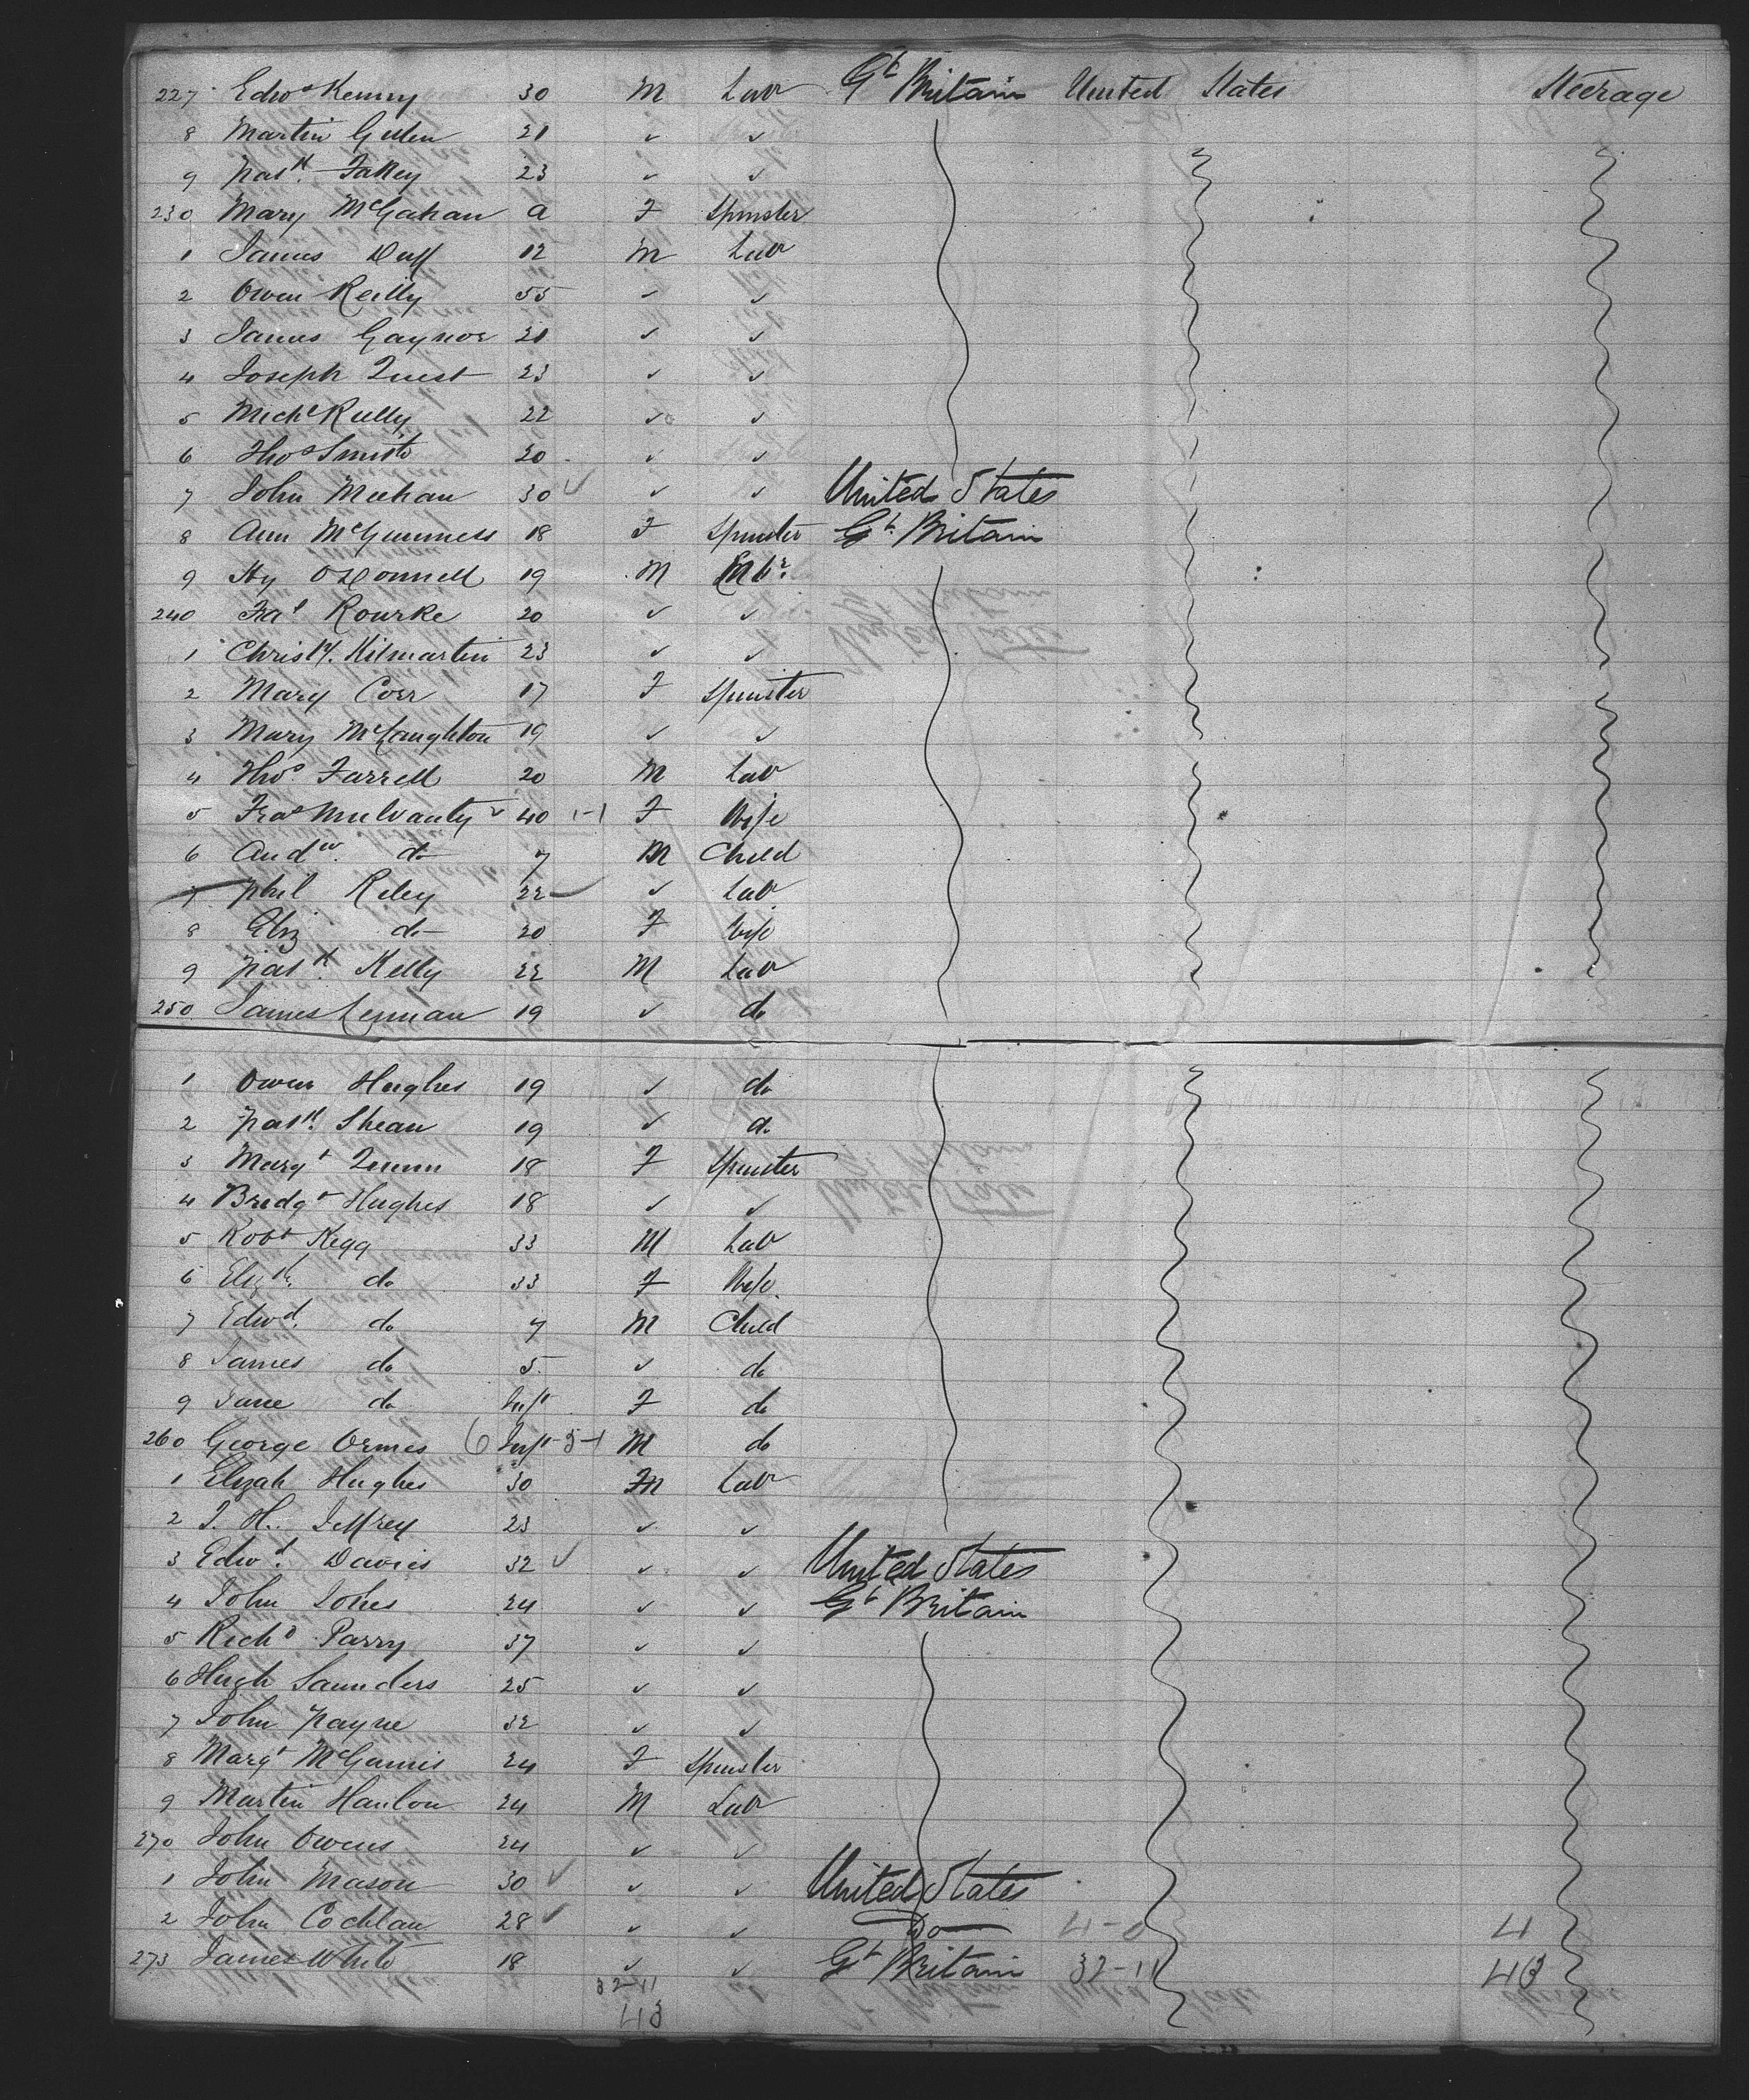 227 Edwd Kenny 30 M Labr Gt Britain United States Steerage
8 Martin 21 ✓ ✓
9 Patk. Fahey 23 ✓ ✓
230 Mary McGahan a F Spinster
1 James Duff 12 M Labr
2 Owen Reilly 55 ✓ ✓
3 James Gaynor 21 ✓ ✓
4 Joseph 23 ✓ ✓
5 Michl Reilly 22 ✓ ✓
6 Thos Smith 20 ✓ ✓
7 John Meehan 30 ✓ ✓ ✓ United States
8 Ann McGuinness 18 F Spinster Gt. Britain
9 Hy O'Donnell 19 M Labr.
240 Fras Rourke 20 ✓ ✓
1 Christy. Kilmartin 23 ✓ ✓
2 Mary Corr 17 F Spinster
3 Mary McLaughton 19 ✓ ✓
4 Thos Farrell 20 M Labr
5 Fras Mulvanty 40 1-1 F Wife
6 Andw. do 7 M Child
7 Phil Riley 22 ✓ Labr
8 Eliz do 20 F Wife
9 Patk. Kelly 22 M Labr
250 James Lennan 19 ✓ do
1 Owen Hughes 19 ✓ do
2 Patk. Shean 19 ✓ do
3 Margt Quinn 18 F Spinster
4 Bredgt Hughes 18 ✓ ✓
5 Robt Kegg 33 M Labr
6 Elizth. do 33 F Wife
7 Edwd. do 7 M Child
8 James do 5 ✓ do
9 Jane do Inft F do
260 George Ormes 6 Inft 5-1 M do
1 Elizah Hughes 30 M Labr
2 J. H. Jeffrey 23 ✓ ✓
3 Edwd. Davies 32 ✓ ✓ ✓ United States
4 John Jones 24 ✓ ✓ Gt Britain
5 Richd Parry 37 ✓ ✓
6 Hugh Saunders 25 ✓ ✓
7 John Payne 32 ✓ ✓
8 Margt McGinnis 24 F Spinster
9 Martin Hanlon 24 M Labr
270 John Owens 24 ✓ ✓
1 John Mason 30 ✓ ✓ ✓ United States
2 John Cochlan 28 ✓ ✓ ✓ Do 4-0 4
273 James White 18 ✓ ✓ Gt Britain 32-11 43
32-11
43